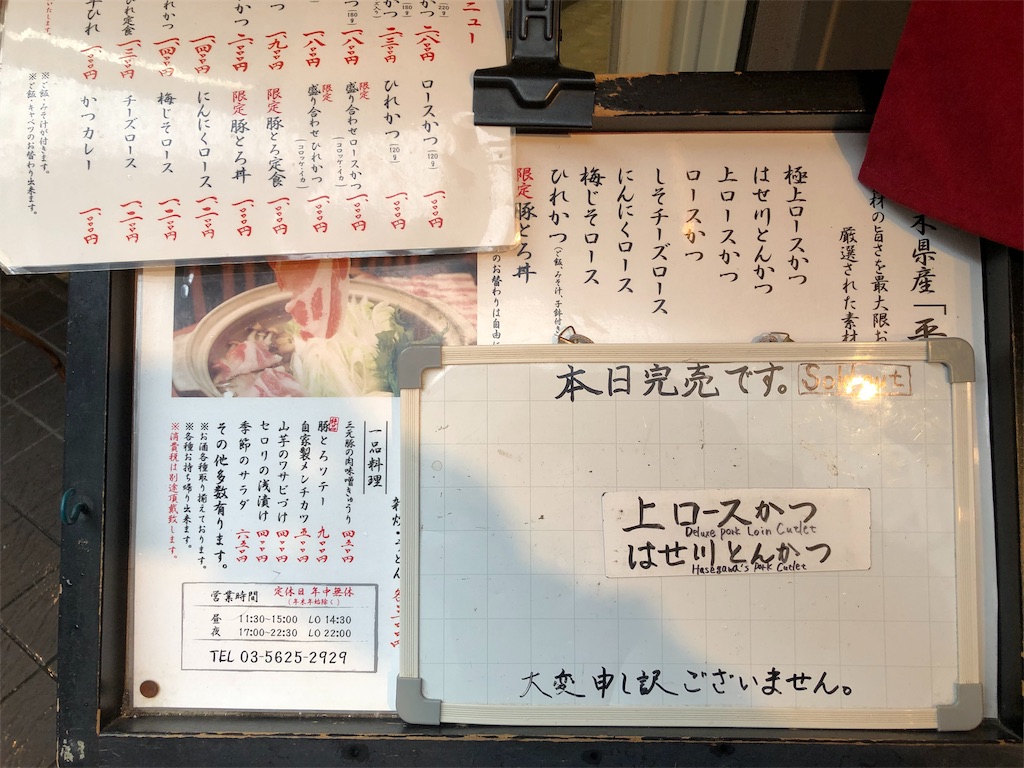 ニュー
ロースかつ(120g) 一、〇〇〇円
ひれかつ(120g) 一、〇〇〇円
限定 盛り合わせロースかつ(コロッケ・イカ) 一、〇〇〇円
限定 盛り合わせひれかつ(コロッケ・イカ) 一、〇〇〇円
限定 豚とろ定食 一、〇〇〇円
限定 豚とろ丼 一、〇〇〇円
にんにくロース 一、二〇〇円
梅じそロース 一、二〇〇円
チーズロース 一、二〇〇円
かつカレー 一、〇〇〇円
※ご飯・みそ汁が付きます。
※ご飯・キャベツのお替わり出来ます。
木県産「平
材の旨さを最大限お
厳選された素材
極上ロースかつ
はせ川とんかつ
上ロースかつ
ロースかつ
しそチーズロース
にんにくロース
梅じそロース
ひれかつ(ご飯、みそ汁、子鉢付き
限定 豚とろ丼
のお替わりは自由に
一品料理
三元豚の肉味噌きゅうり 四五〇円
豚とろソテー 九〇〇円
自家製メンチカツ 五〇〇円
山芋のワサビづけ 四〇〇円
セロリの浅漬け 四〇〇円
季節のサラダ 六五〇円
その他多数有ります。
※お酒各種取り揃えております。
※各種お持ち帰り出来ます。
※消費税は別途頂戴致します。
営業時間 定休日 年中無休
(年末年始除く)
昼 11:30~15:00 LO 14:30
夜 17:00~22:30 LO 22:00
TEL 03-5625-2929
本日完売です。 Sold out
上ロースかつ
Deluxe pork Loin Cutlet
はせ川とんかつ
Hasegawa's pork Cutlet
大変申し訳ございません。